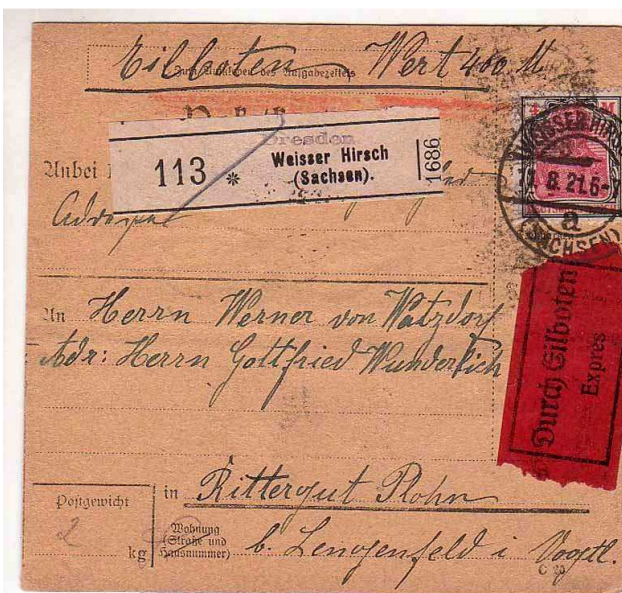 Eilboten Wert 400 M
Zum Aufkleben des Aufgabezettels
Dresden
113 * Weisser Hirsch
(Sachsen).
1686
Anbei
WEISSER HIRSCH
8.21.6-7
a
(SACHSEN)
An Herrn Werner von Watzdorf
Adr: Herrn Gottfried Wunderlich
Durch Eilboten
Expres
Postgewicht
2
kg
in Rittergut Plohn
Wohnung
(Straße und
Hausnummer)
b. Lengenfeld i Vogtl.